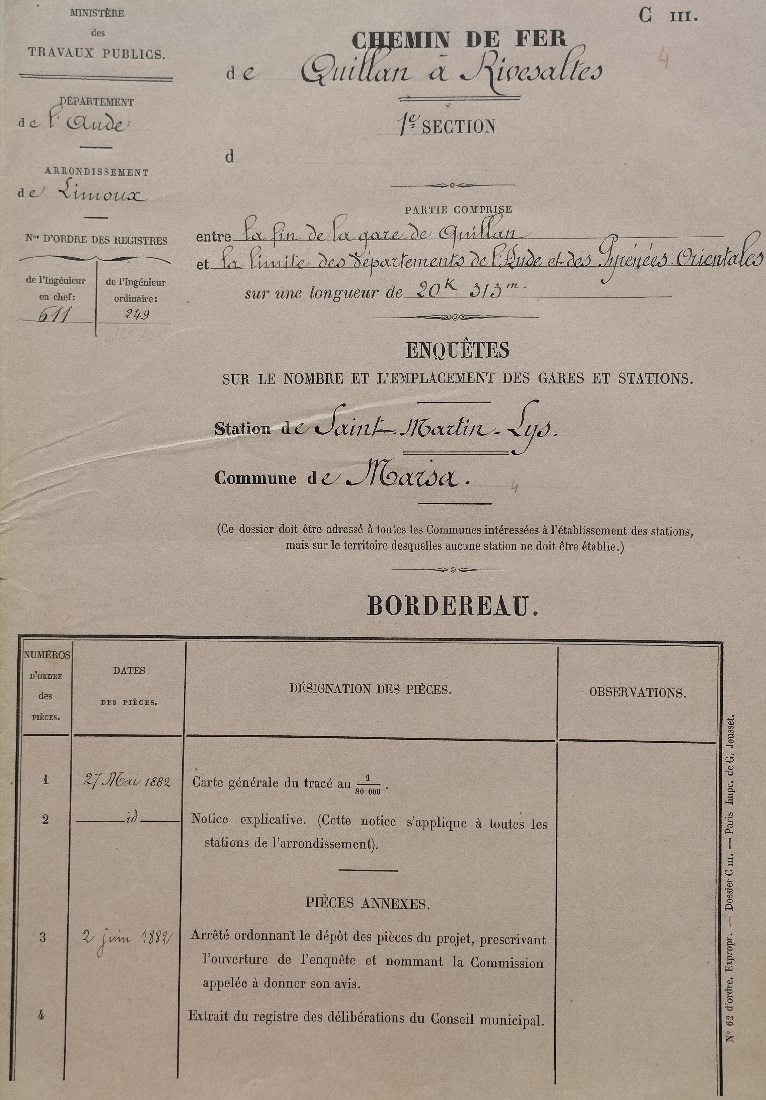 MINISTÈRE
des
TRAVAUX PUBLICS.
DÉPARTEMENT
de l'Aude
ARRONDISSEMENT
de Limoux
Nos D'ORDRE DES REGISTRES
de l'Ingénieur
en chef:
611
de l'Ingénieur
ordinaire:
249
C III.
4
CHEMIN DE FER
de Quillan à Rivesaltes
1e SECTION
d
PARTIE COMPRISE
entre la fin de la gare de Quillan
et la limite des départements de l'Aude et des Pyrénées-Orientales
sur une longueur de 20K 313m.
ENQUÊTES
SUR LE NOMBRE ET L'EMPLACEMENT DES GARES ET STATIONS.
Station de Saint-Martin-Lys.
Commune de Marsa.
4
(Ce dossier doit être adressé à toutes les Communes intéressées à l'établissement des stations,
mais sur le territoire desquelles aucune station ne doit être établie.)
BORDEREAU.
NUMÉROS
D'ORDRE
des
PIÈCES.
DATES
DES PIÈCES.
DÉSIGNATION DES PIÈCES.
OBSERVATIONS.
1 27 Mai 1882 Carte générale du tracé au 1/80 000.
2 id Notice explicative. (Cette notice s'applique à toutes les
stations de l'arrondissement).
PIÈCES ANNEXES.
3 2 juin 1882 Arrêté ordonnant le dépôt des pièces du projet, prescrivant
l'ouverture de l'enquête et nommant la Commission
appelée à donner son avis.
4 Extrait du registre des délibérations du Conseil municipal.
No 62 d'ordre. Expropr. — Dossier C III. — Paris Impr. de G. Jousset.